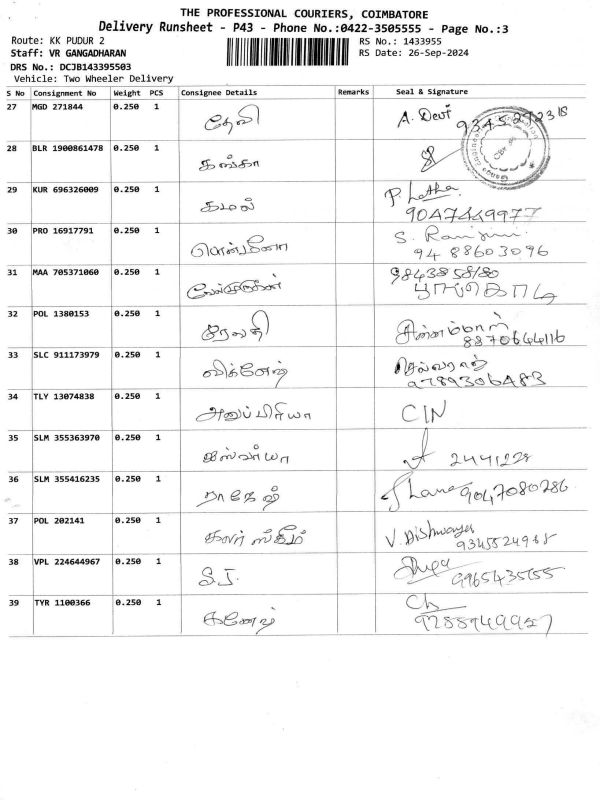 THE PROFESSIONAL COURIERS, COIMBATORE
Delivery Runsheet - P43 - Phone No.:0422-3505555 - Page No.:3
Route: KK PUDUR 2 RS No.: 1433955
Staff: VR GANGADHARAN RS Date: 26-Sep-2024
DRS No.: DCJB143395503
Vehicle: Two Wheeler Delivery
S No Consignment No Weight PCS Consignee Details Remarks Seal & Signature
27 MGD 271844 0.250 1 தேவி A. Devi
28 BLR 1900861478 0.250 1 கங்கா
29 KUR 696326009 0.250 1 கமல் P. Latha
9047449977
30 PRO 16917791 0.250 1 S. Ranjini
94 88603096
31 MAA 705371060 0.250 1 வேல்முருகன்
பூங்கொடி
32 POL 1380153 0.250 1 சின்னம்மாள்
8870644116
33 SLC 911173979 0.250 1 விக்னேஷ் செல்வராஜ்
9789306483
34 TLY 13074838 0.250 1 அனுப்பிரியா CIN
35 SLM 355363970 0.250 1 ஐஸ்வர்யா 2441228
36 SLM 355416235 0.250 1 ராஜேஷ் 9047080286
37 POL 202141 0.250 1 V.
9345524988
38 VPL 224644967 0.250 1 S.J.
39 TYR 1100366 0.250 1 கணேஷ்